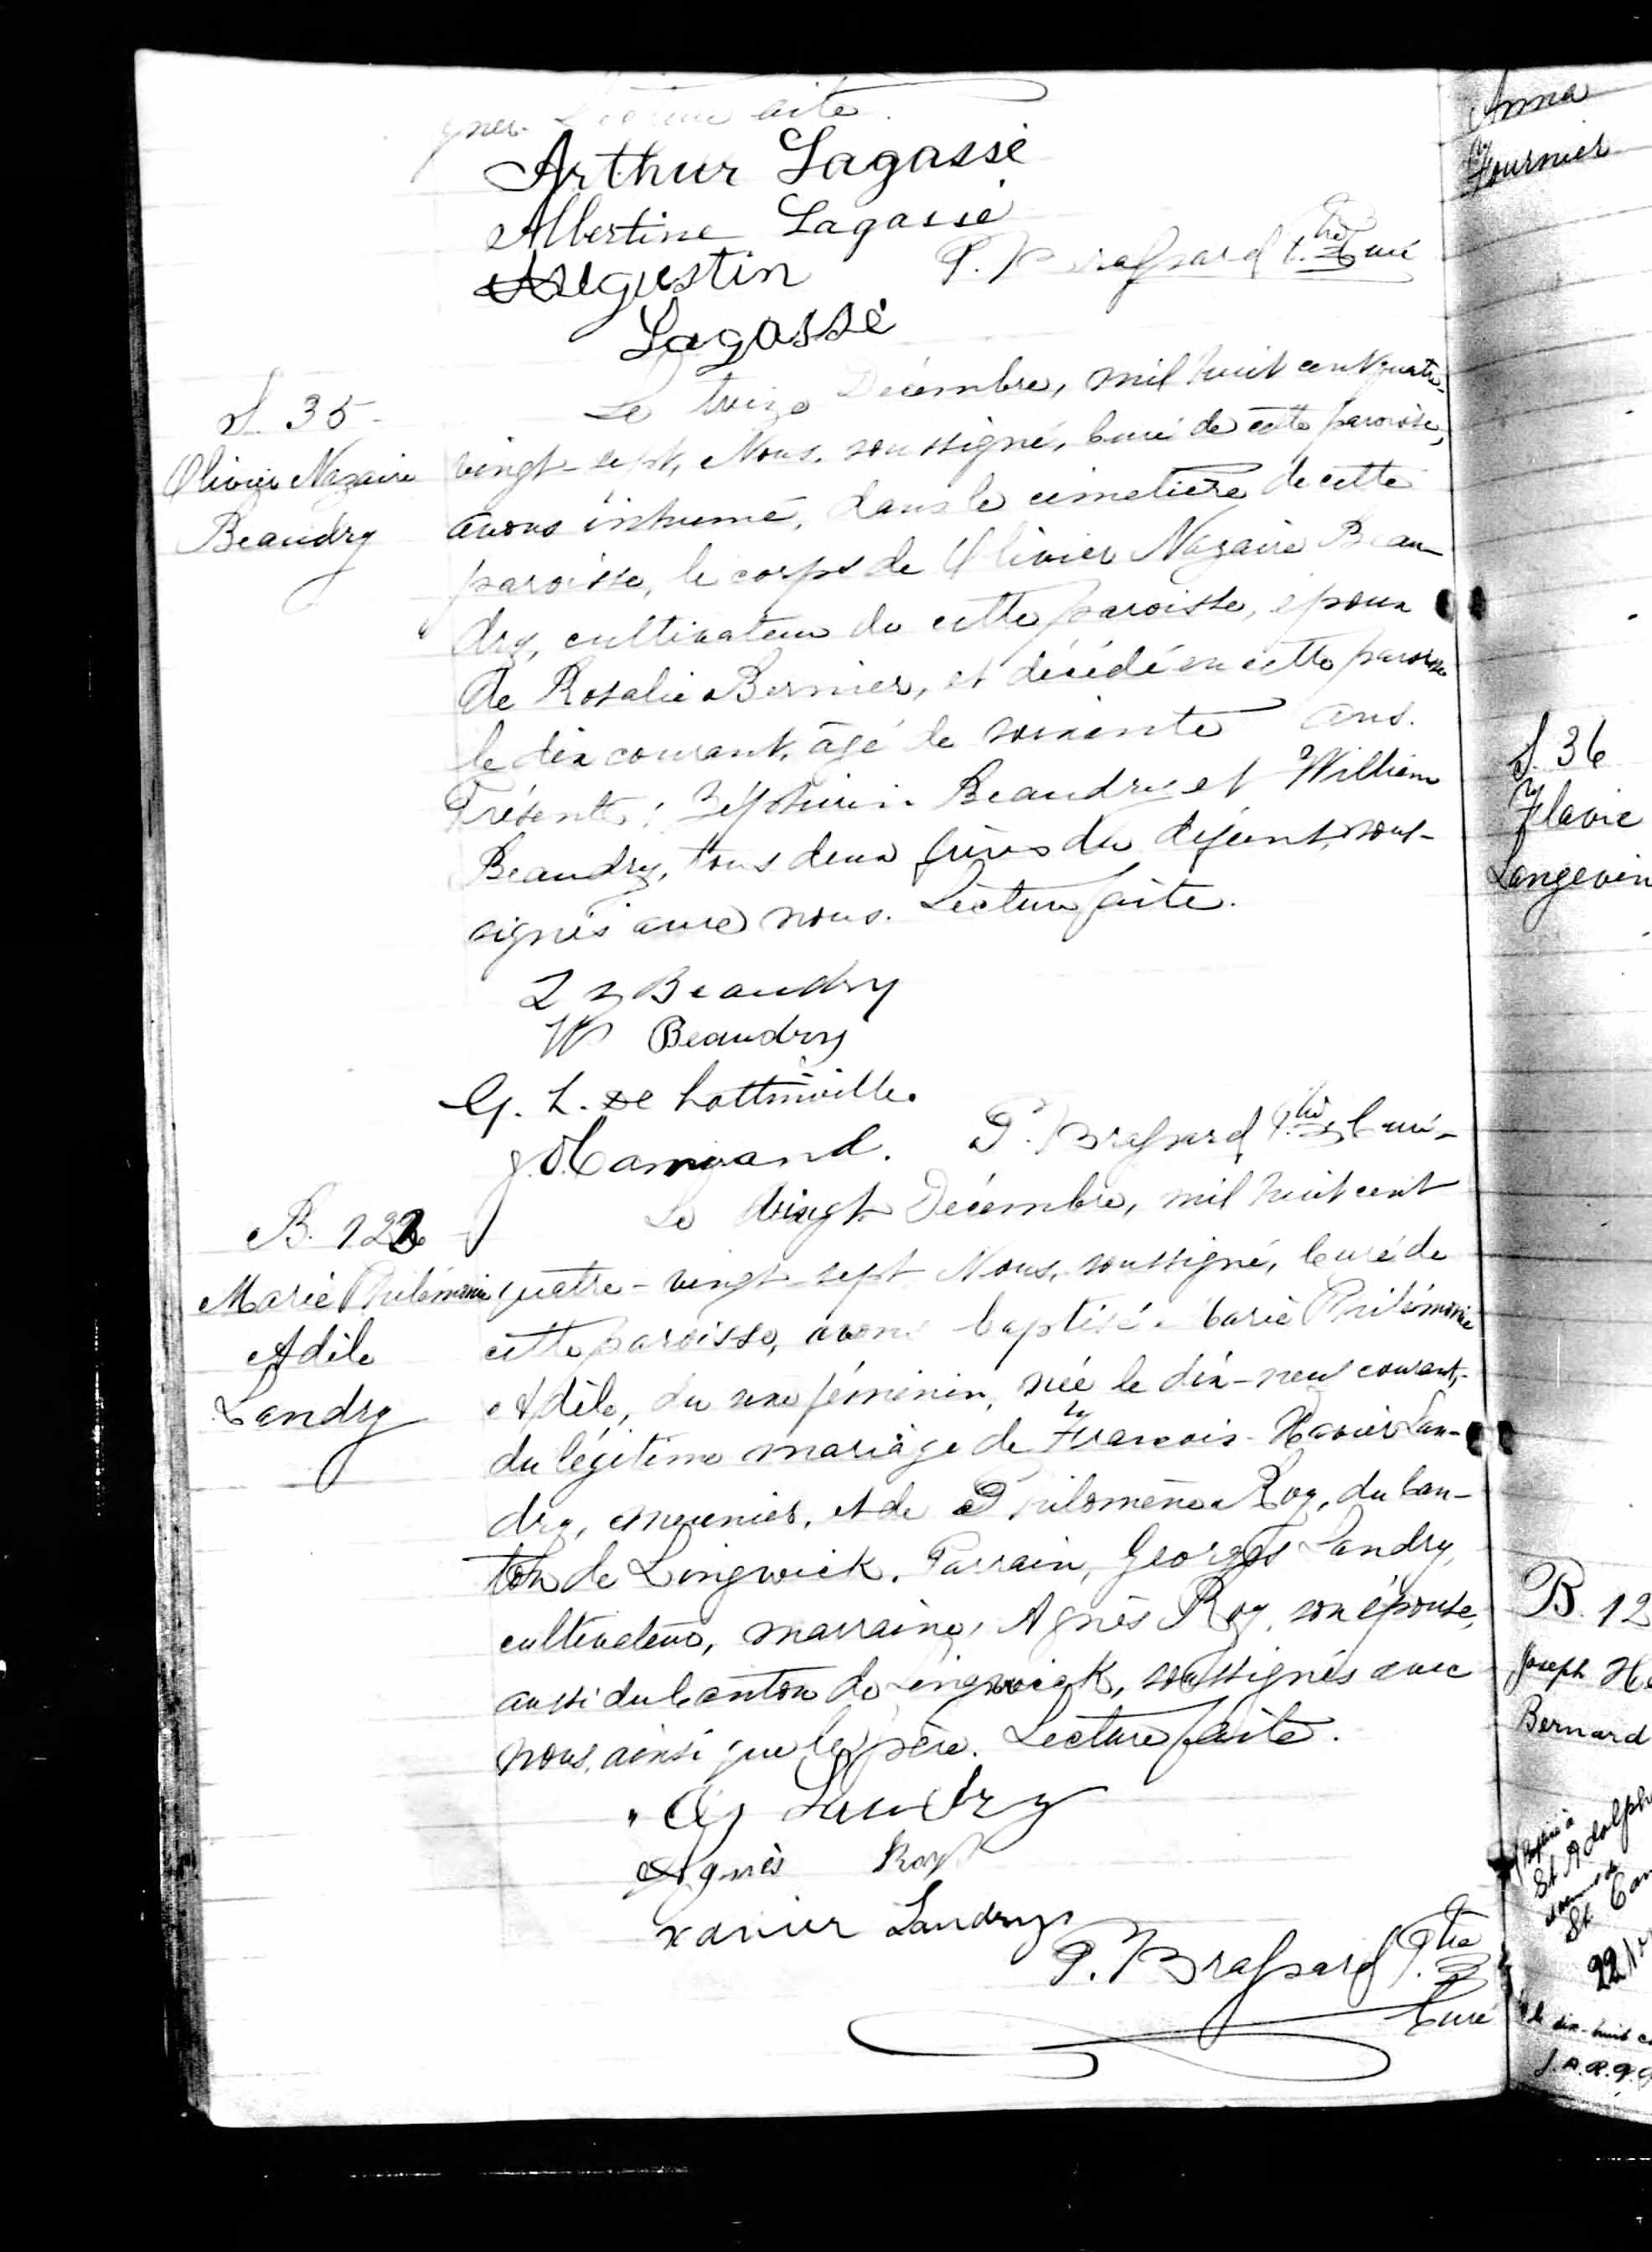 Arthur Lagassé
Albertine Lagassé
Augustin
Lagassé
P. Brassard Ptre Curé
S. 35
Olivier Nazaire
Beaudry
Le treize Décembre, mil huit cent quatre-
vingt-sept, Nous, soussigné, Curé de cette paroisse,
avons inhumé, dans le cimetière de cette
paroisse, le corps de Olivier Nazaire Beau-
dry, cultivateur de cette paroisse, époux
de Rosalie Bernier, et décédé en cette paroisse
le dix courant, âgé de soixante ans.
Présents: Zéphirin Beaudry et William
Beaudry, tous deux frères du défunt, sous-
signés avec nous. Lecture faite.
Z Beaudry
W Beaudry
G. L. de Lottinville.
P. Brassard Ptre Curé
B. 122
Marie Philémonie
Adèle
Landry
Le vingt Décembre, mil huit cent
quatre-vingt-sept Nous, soussigné, Curé de
cette paroisse, avons baptisé Marie Philémonie
Adèle, du sexe féminin, née le dix-neuf courant,
du légitime mariage de François-Xavier Lan-
dry, meunier, et de Philomène Roy, du Can-
ton de Lingwick. Parrain, Georges Landry,
cultivateur, marraine, Agnès Roy, son épouse,
aussi du Canton de Lingwick, soussignés avec
nous, ainsi que le père. Lecture faite.
Landry
Agnès Roy
Xavier Landry
P. Brassard Ptre
Curé
Anna
Fournier
S. 36
Flavie
Langevin
B. 12
Joseph
Bernard
St Adolph
St. Cam
22